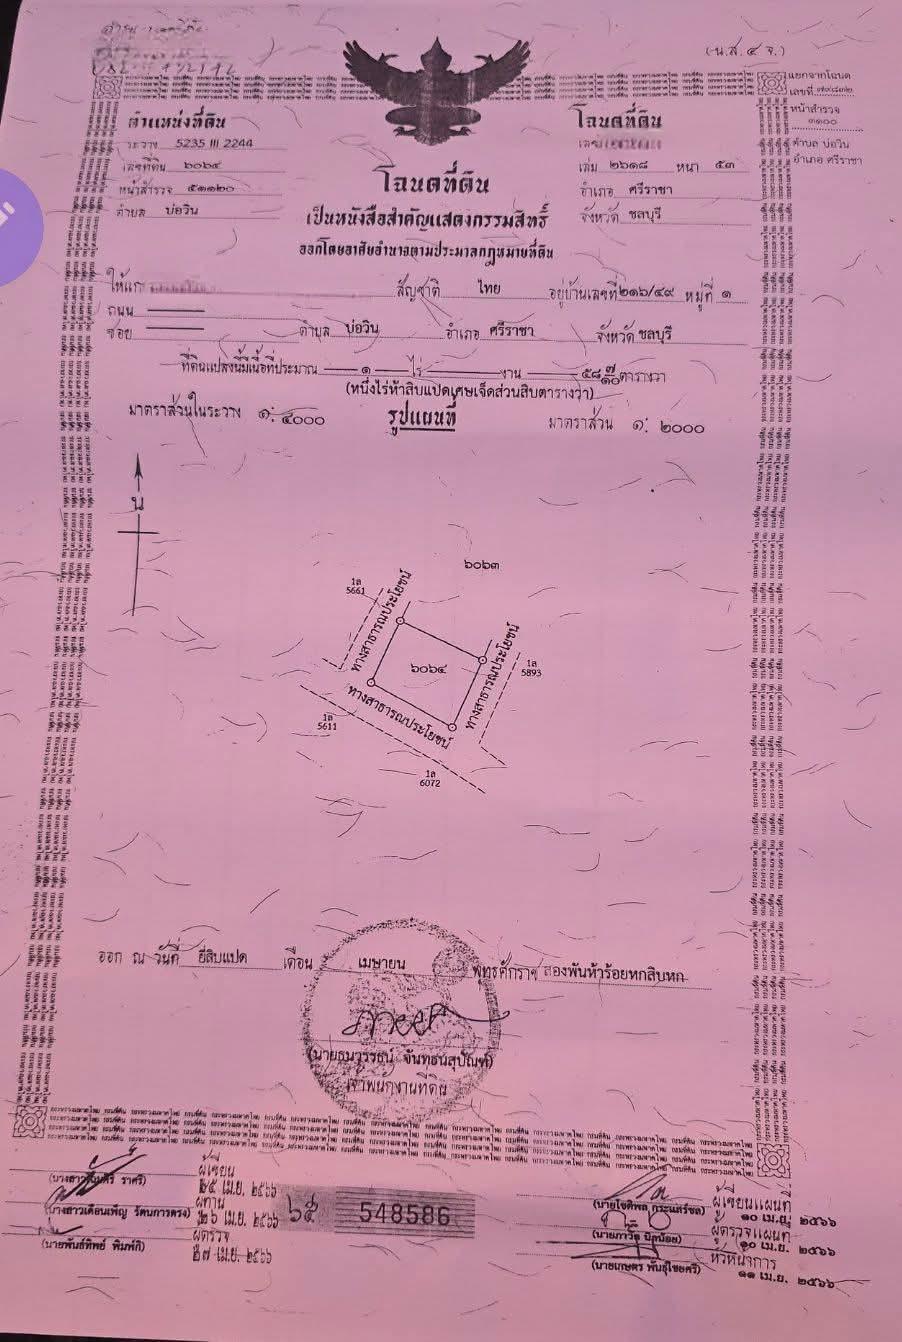 (น.ส. ๔ จ.)
แยกจากโฉนด
เลขที่
หน้าสำรวจ
๓๑๐๐
ตำบล บ่อวิน
อำเภอ ศรีราชา
ตำแหน่งที่ดิน
ระวาง 5235 III 2244
เลขที่ดิน ๖๐๖๔
หน้าสำรวจ ๕๑๑๒๐
ตำบล บ่อวิน
โฉนดที่ดิน
เลขที่
เล่ม ๒๖๑๘ หน้า ๕๓
อำเภอ ศรีราชา
จังหวัด ชลบุรี
โฉนดที่ดิน
เป็นหนังสือสำคัญแสดงกรรมสิทธิ์
ออกโดยอาศัยอำนาจตามประมวลกฎหมายที่ดิน
ให้แก่ สัญชาติ ไทย อยู่บ้านเลขที่ ๒๑๖/๔๙ หมู่ที่ ๑
ถนน
ซอย ตำบล บ่อวิน อำเภอ ศรีราชา จังหวัด ชลบุรี
ที่ดินแปลงนี้มีเนื้อที่ประมาณ ๑ ไร่ งาน ๕๘ ๗/๑๐ ตารางวา
(หนึ่งไร่ห้าสิบแปดเศษเจ็ดส่วนสิบตารางวา)
มาตราส่วนในระวาง ๑: ๔๐๐๐ รูปแผนที่ มาตราส่วน ๑: ๒๐๐๐
น
๖๐๖๓
1ล
5661
ทางสาธารณประโยชน์
๖๐๖๔
ทางสาธารณประโยชน์
1ล
5893
ทางสาธารณประโยชน์
1ล
5611
1ล
6072
ออก ณ วันที่ ยี่สิบแปด เดือน เมษายน พุทธศักราช สองพันห้าร้อยหกสิบหก
เจ้าพนักงานที่ดิน
ผู้เขียน
๒๕ เม.ย. ๒๕๖๖
(นางสาวเดือนเพ็ญ รัตนการตรง) ผู้ทาน
๒๖ เม.ย. ๒๕๖๖
(นายพันธ์ทิพย์ พิมพ์กิ) ผู้ตรวจ
๒๗ เม.ย. ๒๕๖๖
๖๕ 548586
ผู้เขียนแผนที่
๑๐ เม.ย. ๒๕๖๖
ผู้ตรวจแผนที่
๑๐ เม.ย. ๒๕๖๖
(นายเกษตร พันธุ์ไชยศรี) หัวหน้าการ
๑๑ เม.ย. ๒๕๖๖